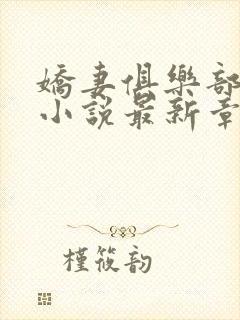 嬌妻俱樂部
小說最新章
槿筱韵